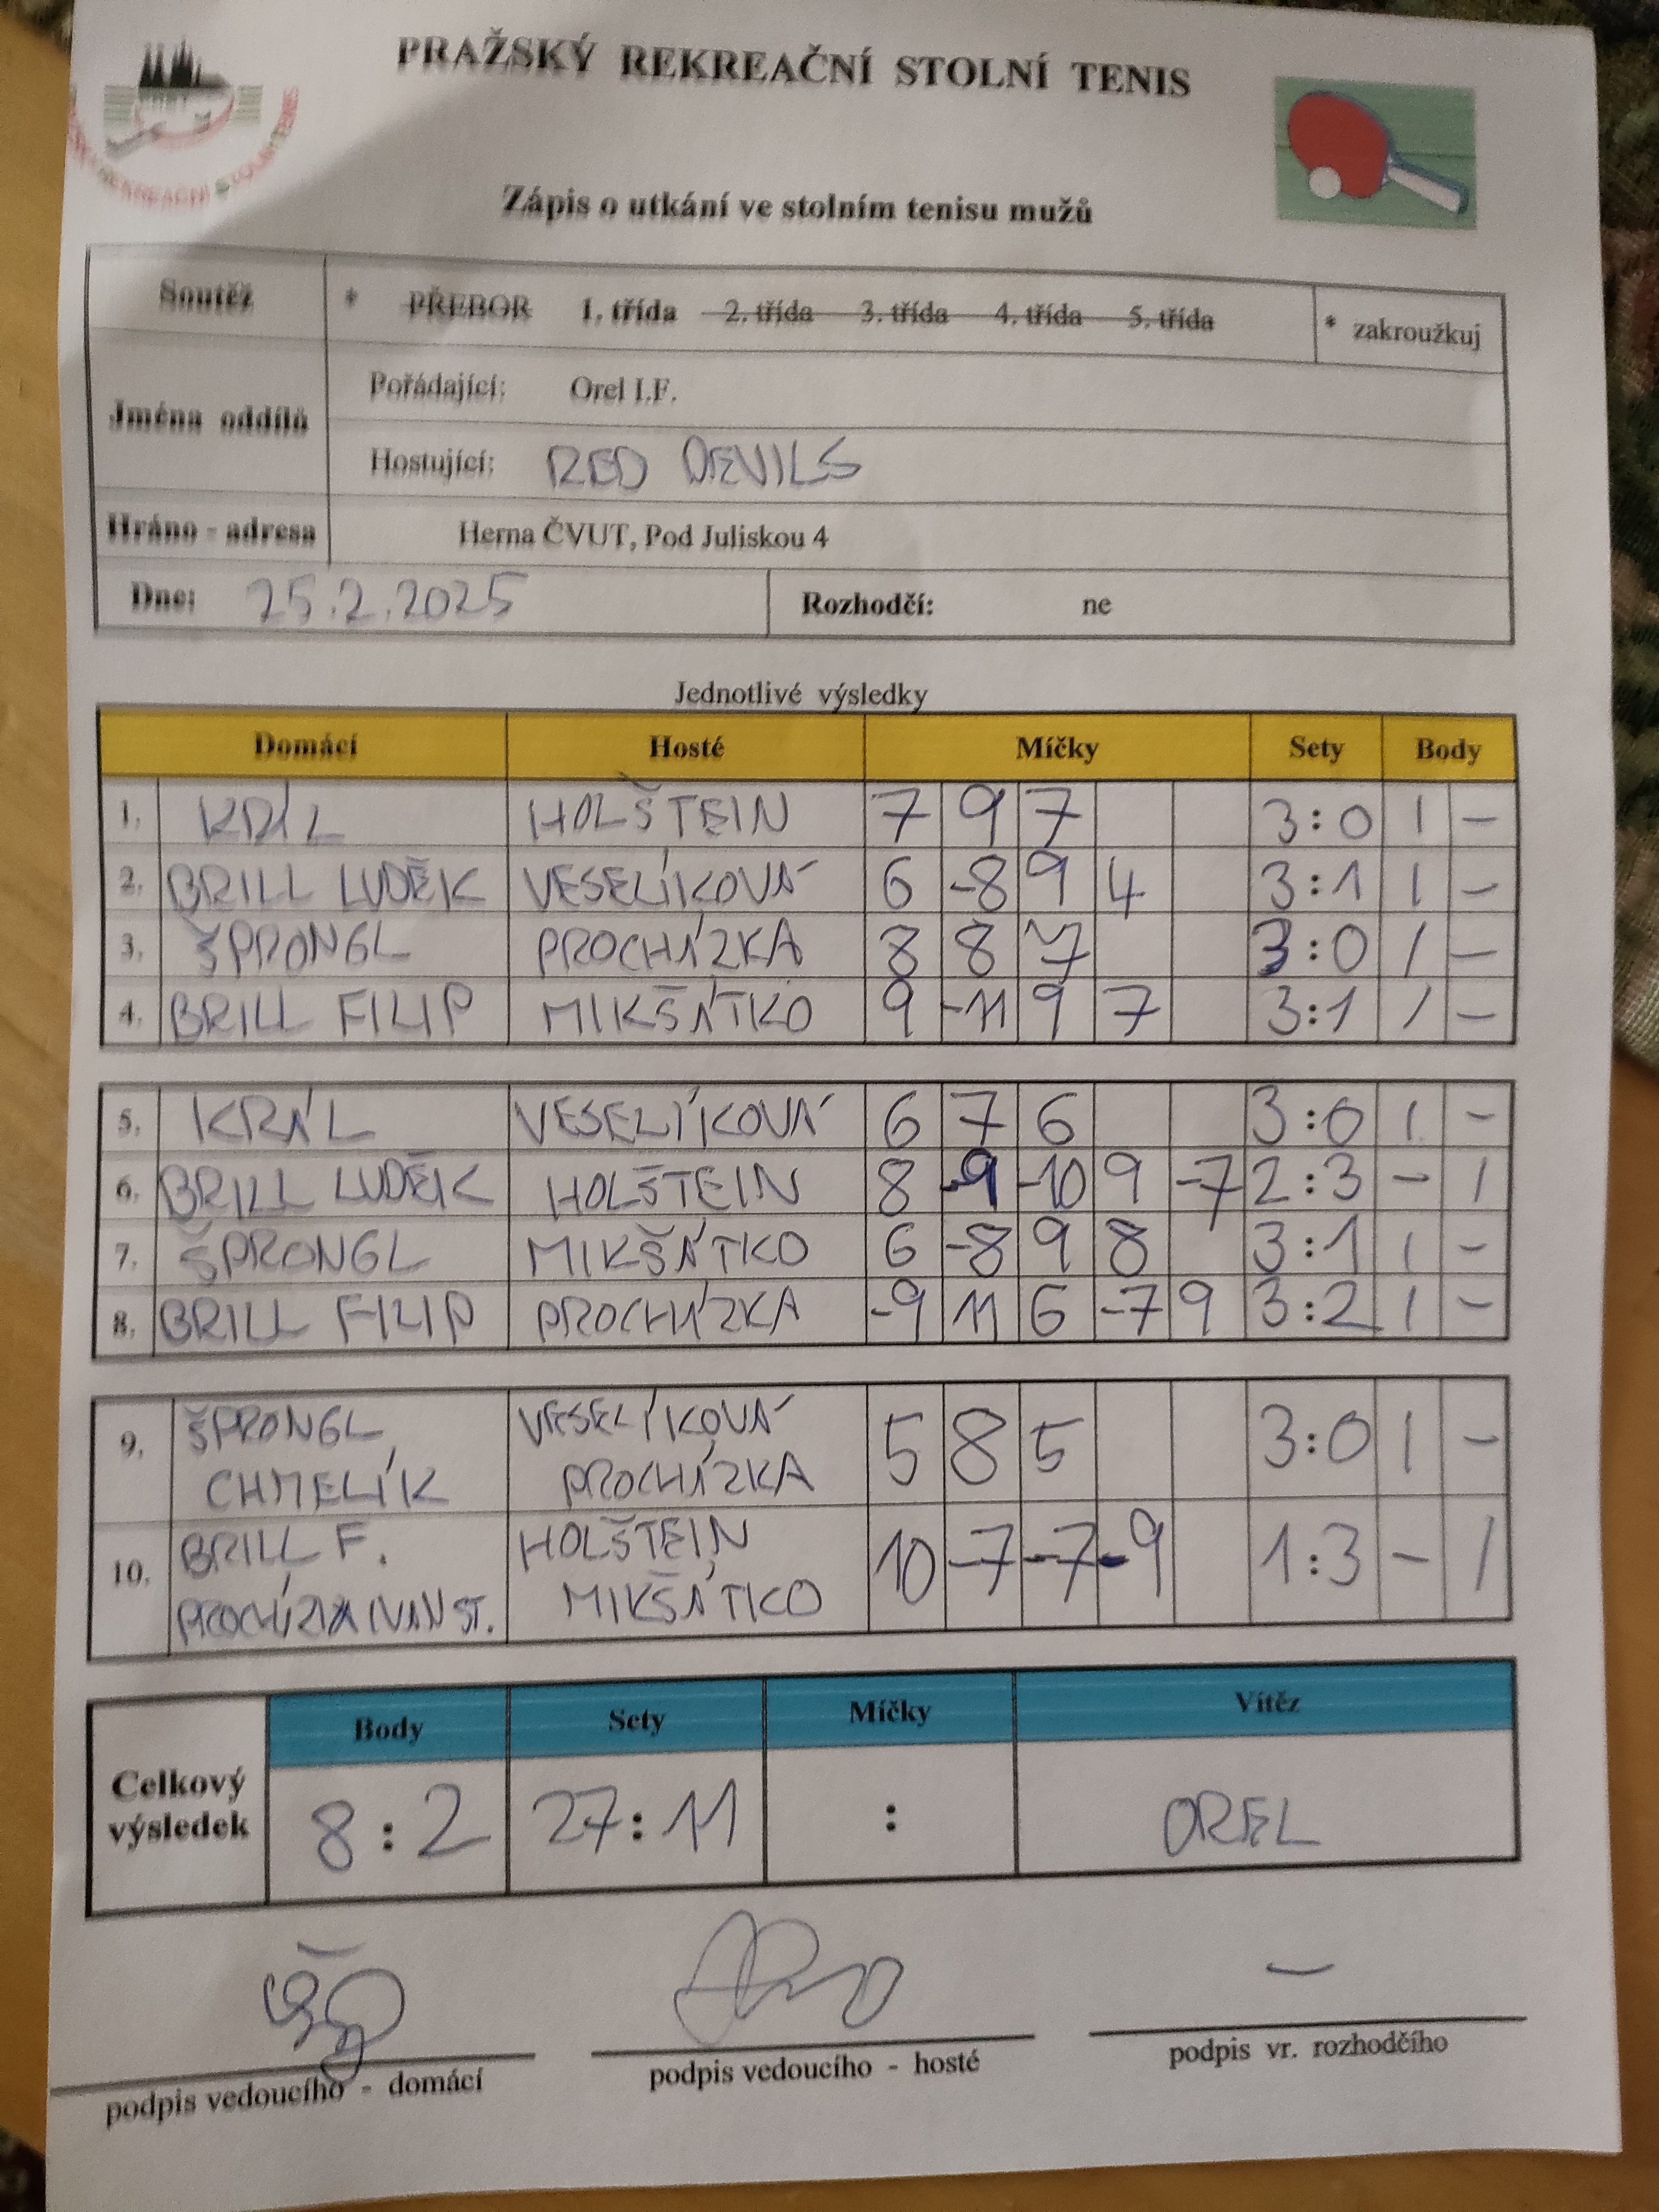 PRAŽSKÝ REKREAČNÍ STOLNÍ TENIS
REKREAČNÍ STOLNÍ TENIS
Zápis o utkání ve stolním tenisu mužů
Soutěž * PŘEBOR 1. třída 2. třída 3. třída 4. třída 5. třída * zakroužkuj
Jména oddílů
Pořádající: Orel I.F.
Hostující: RED DEVILS
Hráno - adresa Herna ČVUT, Pod Juliskou 4
Dne: 25.2.2025 Rozhodčí: ne
Jednotlivé výsledky
Domácí Hosté Míčky Sety Body
1. KRÁL HOLŠTEIN 7 9 7 3:0 1 -
2. BRILL LUDĚK VESELÍKOVÁ 6 -8 9 4 3:1 1 -
3. ŠPRONGL PROCHÁZKA 8 8 7 3:0 1 -
4. BRILL FILIP MIKŠÁTKO 9 -11 9 7 3:1 1 -
5. KRÁL VESELÍKOVÁ 6 7 6 3:0 1 -
6. BRILL LUDĚK HOLŠTEIN 8 -9 -10 9 -7 2:3 - 1
7. ŠPRONGL MIKŠÁTKO 6 -8 9 8 3:1 1 -
8. BRILL FILIP PROCHÁZKA -9 11 6 -7 9 3:2 1 -
9. ŠPRONGL VESELÍKOVÁ 5 8 5 3:0 1 -
CHMELÍK PROCHÁZKA
10. BRILL F. HOLŠTEIN 10 -7 -7 -9 1:3 - 1
PROCHÁZKA IVAN ST. MIKŠÁTKO
Body Sety Míčky Vítěz
Celkový výsledek 8:2 27:11 : OREL
podpis vedoucího - domácí podpis vedoucího - hosté podpis vr. rozhodčího